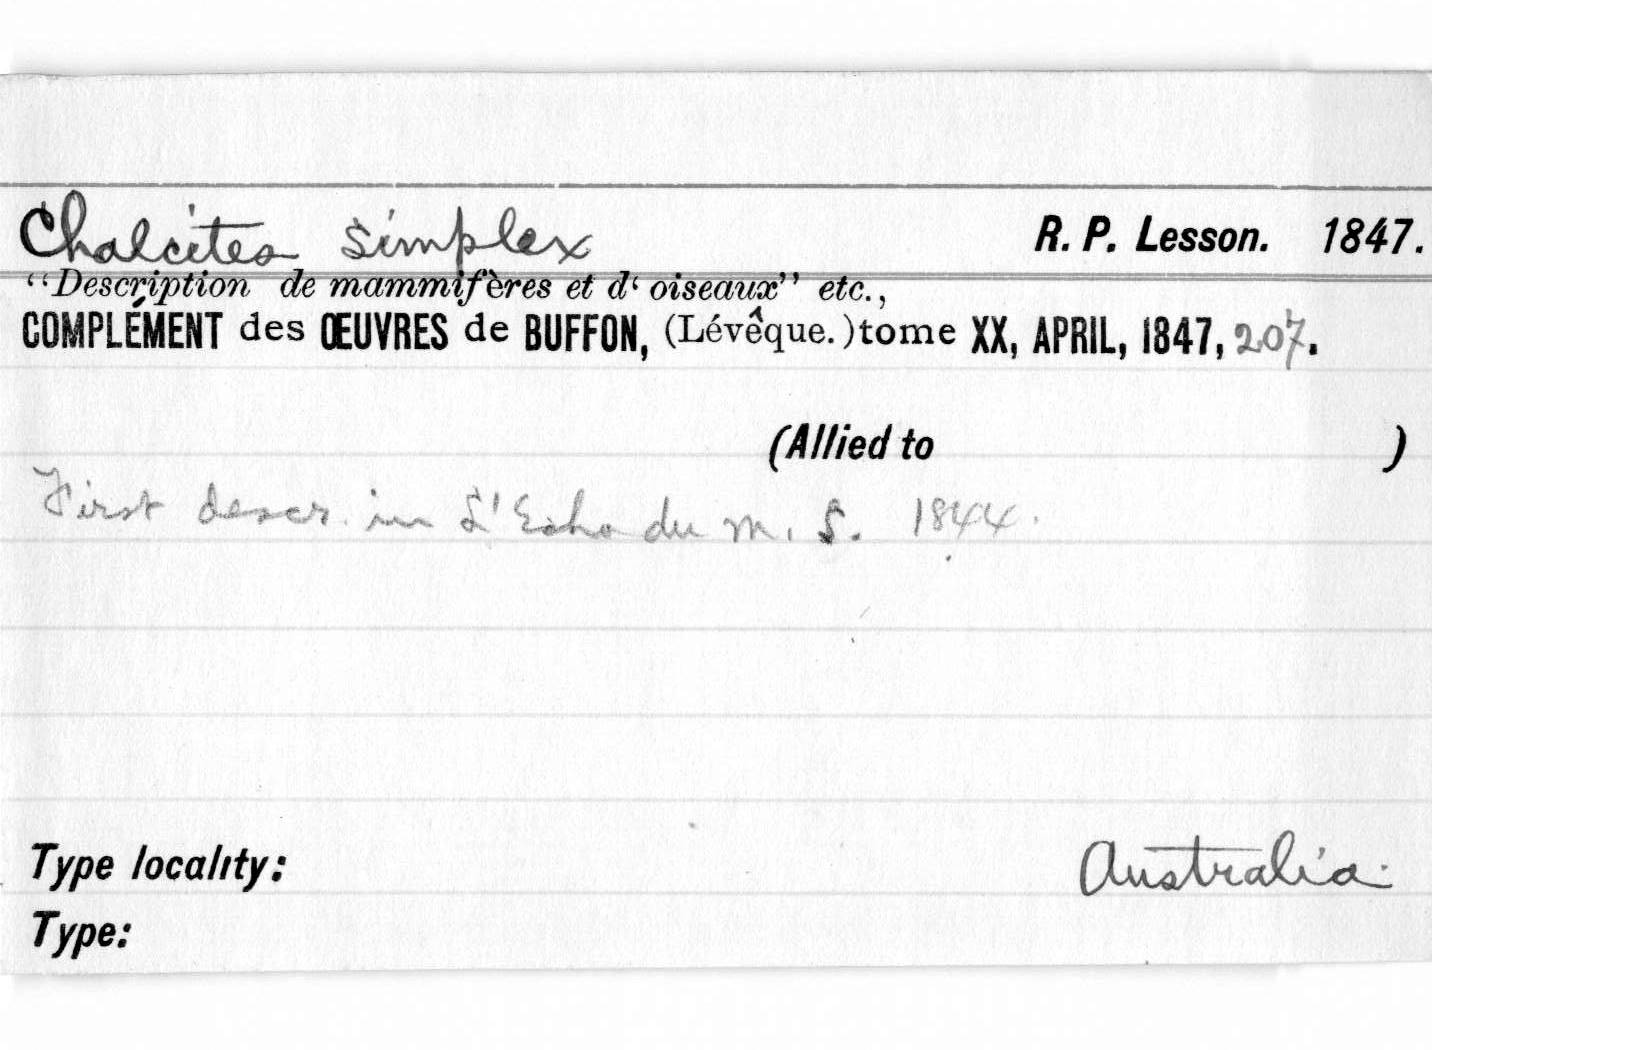 Chalcites simplex R. P. Lesson. 1847.
“Description de mammifères et d‘ oiseaux” etc.,
COMPLÉMENT des ŒUVRES de BUFFON, (Lévêque.) tome XX, APRIL, 1847, 207.
(Allied to )
First descr. in L'Echo du M. S. 1844.
Type locality: Australia.
Type: